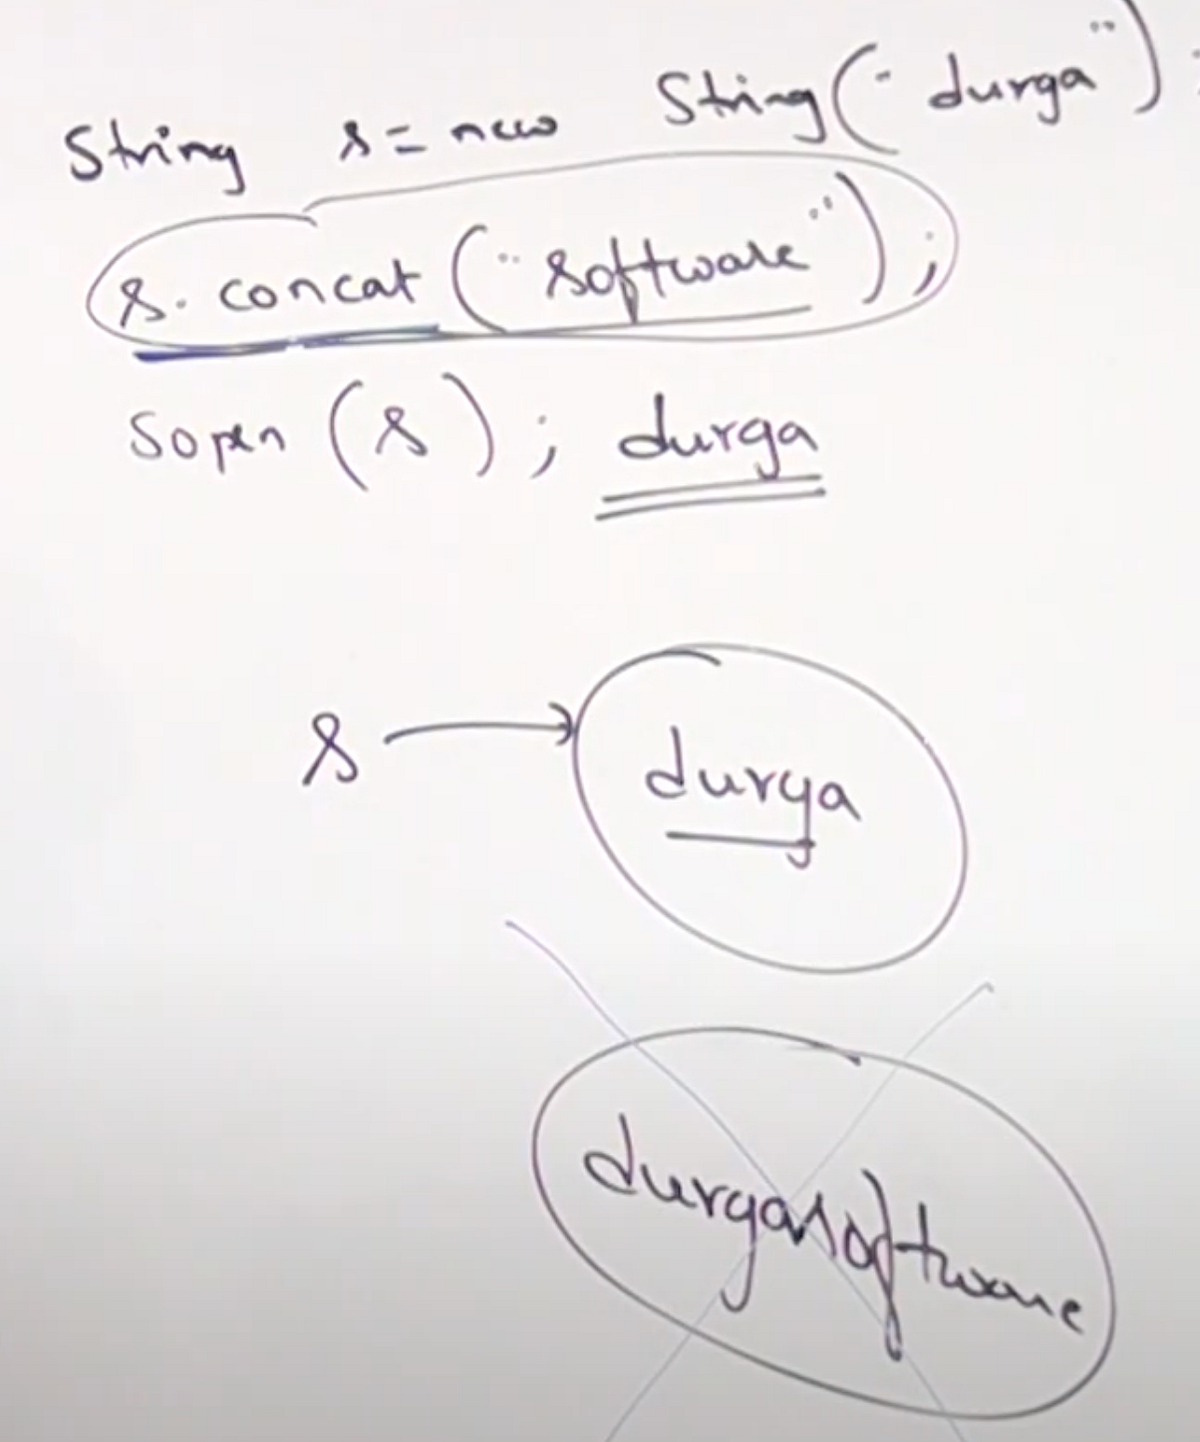 String s = new String("durga");
s.concat("software");
Sopln(s); durga
s → durga
durgasoftware